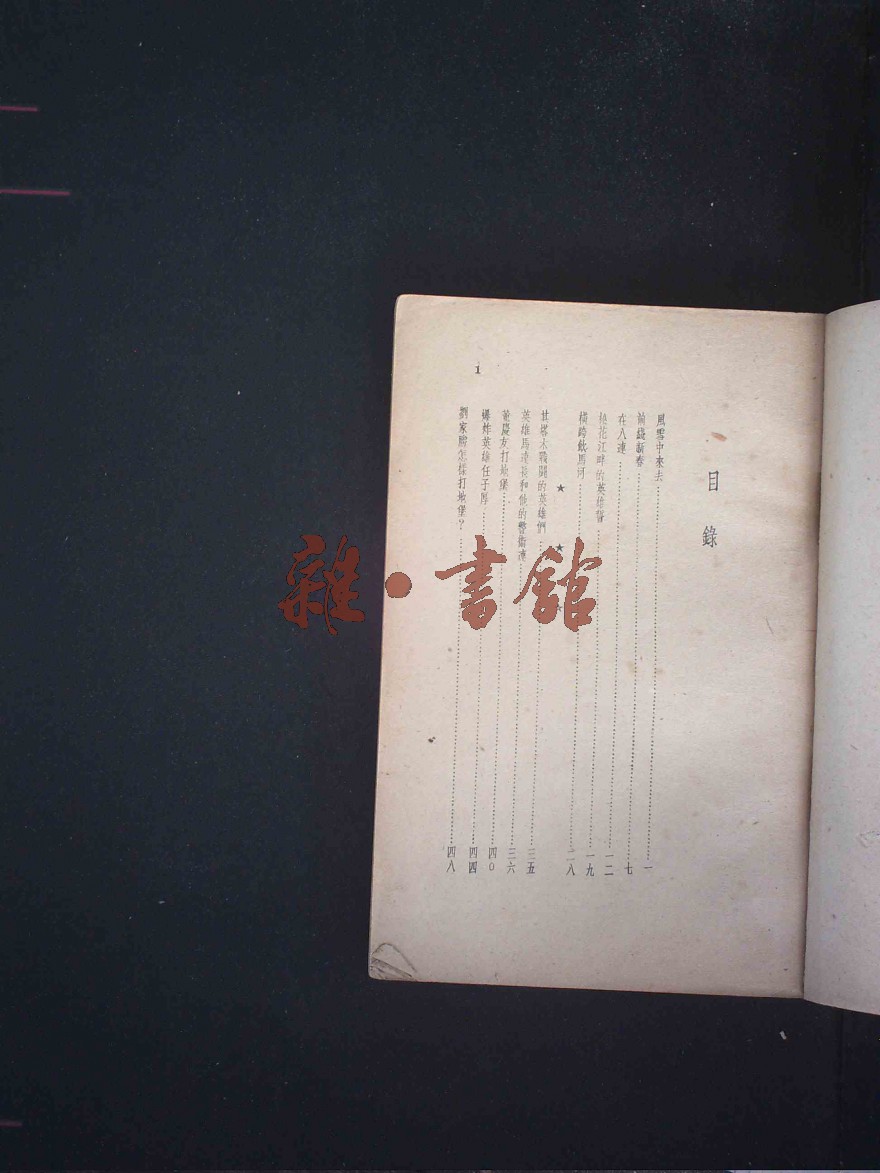 目錄
風雪中來去……一
前綫新春……七
在八連……一二
松花江畔的英雄誓……一九
橫跨飲馬河……二八
★ ★
其塔木戰鬪的英雄們……三五
英雄馬連長和他的警衞連……三六
董慶友打地堡……四〇
爆炸英雄任子厚……四四
劉家勝怎樣打地堡？……四八
1
雜·書館